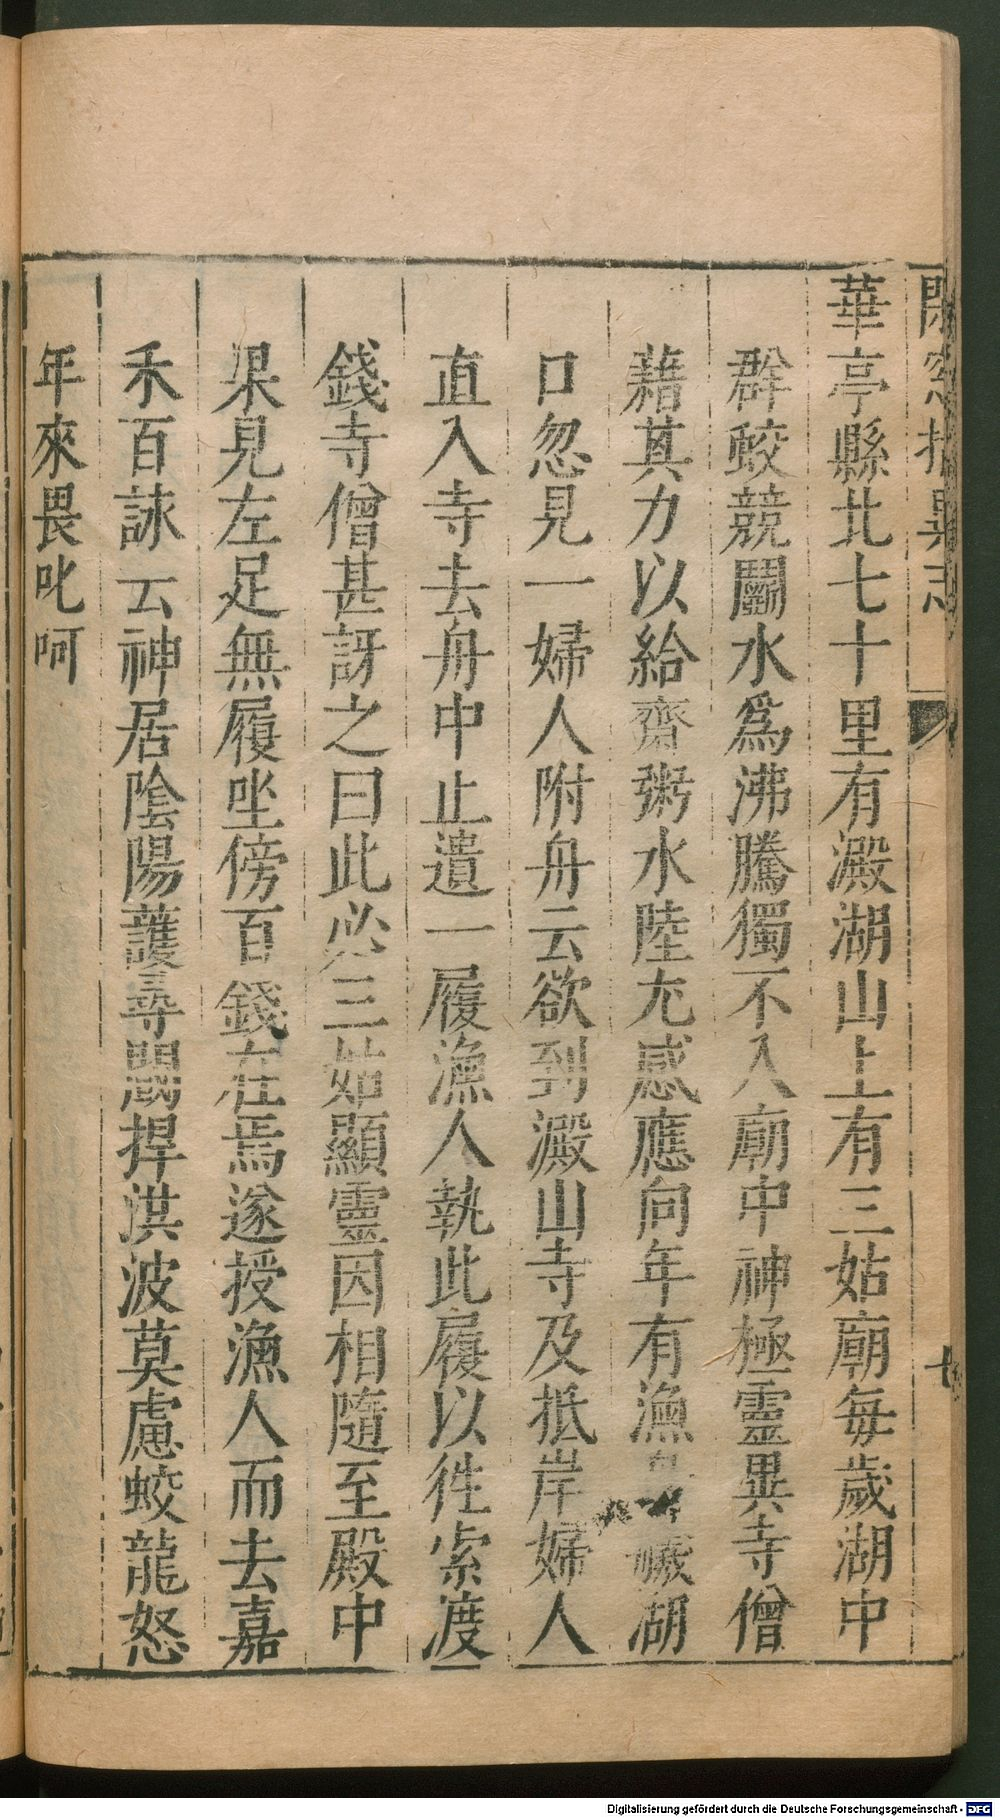 閒窓括異志 七
華亭縣北七十里有澱湖山上有三姑廟每歲湖中
群蛟競鬭水爲沸騰獨不入廟中神極靈異寺僧
藉其力以給齋粥水陸尤感應向年有漁 艤湖
口忽見一婦人附舟云欲到澱山寺及抵岸婦人
直入寺去舟中止遺一履漁人執此履以徃索渡
錢寺僧甚訝之曰此必三姑顯靈因相隨至殿中
果見左足無履坐傍百錢在焉遂授漁人而去嘉
禾百詠云神居隂陽護尋閥捍洪波莫慮蛟龍怒
年來畏叱呵
Digitalisierung gefördert durch die Deutsche Forschungsgemeinschaft - DFG